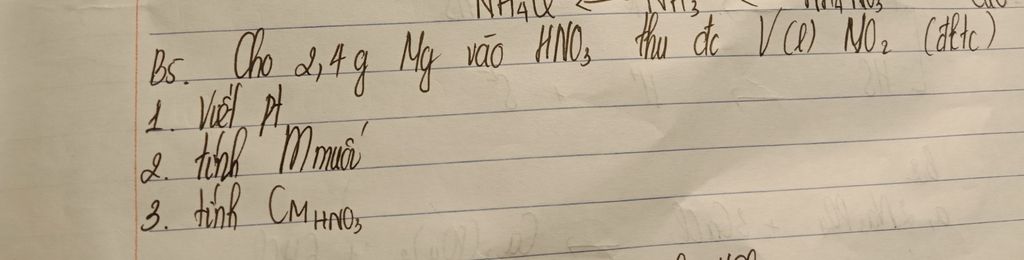 NH4Cl ← NH3 ← NH4NO3
B5. Cho 2,4g Mg vào HNO3 thu đc V(l) NO2 (đktc)
1. Viết pt
2. tính Mmuối
3. tính CM HNO3